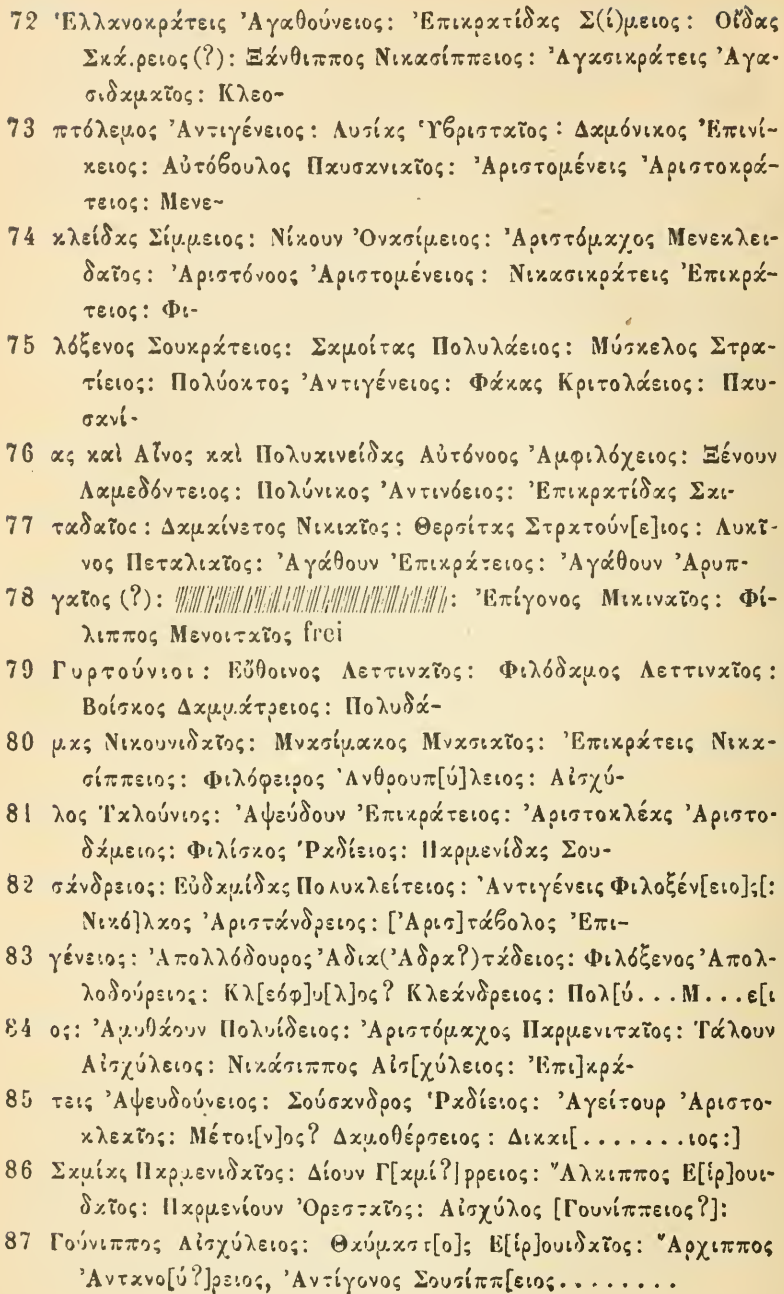 72 Ἑλλανοκράτεις Ἀγαθούνειος: Ἐπικρατίδας Σ(ί)μειος: Οἴδας
Σκά.ρειος(?): Ξάνθιππος Νικασίππειος: Ἀγασικράτεις Ἀγα-
σιδαμαῖος: Κλεο-
73 πτόλεμος Ἀντιγένειος: Λυσίας Ὑβρισταῖος: Δαμόνικος Ἐπινί-
κειος: Αὐτόβουλος Παυσανιαῖος: Ἀριστομένεις Ἀριστοκρά-
τειος: Μενε-
74 κλείδας Σίμμειος: Νίκουν Ὀνασίμειος: Ἀριστόμαχος Μενεκλει-
δαῖος: Ἀριστόνοος Ἀριστομένειος: Νικασικράτεις Ἐπικρά-
τειος: Φι-
75 λόξενος Σουκράτειος: Σαμοίτας Πολυλάειος: Μύσκελος Στρα-
τίειος: Πολύοκτος Ἀντιγένειος: Φάκας Κριτολάειος: Παυ-
σανί-
76 ας καὶ Αἶνος καὶ Πολυαινείδας Αὐτόνοος Ἀμφιλόχειος: Ξένουν
Λαμεδόντειος: Πολύνικος Ἀντινόειος: Ἐπικρατίδας Σαι-
77 ταδαῖος: Δαμαίνετος Νικιαῖος: Θερσίτας Στρατούν[ε]ιος: Λυκῖ-
νος Πεταλιαῖος: Ἀγάθουν Ἐπικράτειος: Ἀγάθουν Ἀρυπ-
78 γαῖος (?): : Ἐπίγονος Μικιναῖος: Φί-
λιππος Μενοιταῖος frei
79 Γυρτούνιοι: Εὔθοινος Λεττιναῖος: Φιλόδαμος Λεττιναῖος:
Βοίσκος Δαμμάτρειος: Πολυδά-
80 μας Νικουνιδαῖος: Μνασίμαχος Μνασιαῖος: Ἐπικράτεις Νικα-
σίππειος: Φιλόφειρος Ἀνθρουπ[ύ]λειος: Αἰσχύ-
81 λος Ταλούνιος: Ἀψεύδουν Ἐπικράτειος: Ἀριστοκλέας Ἀριστο-
δάμειος: Φιλίσκος Ῥαδίειος: Παρμενίδας Σου-
82 σάνδρειος: Εὐδαμίδας Πολυκλείτειος: Ἀντιγένεις Φιλοξέν[ειο]ς[:
Νικό]λαος Ἀριστάνδρειος: [Ἀρισ]τάβολος Ἐπι-
83 γένειος: Ἀπολλόδουρος Ἀδια(Ἀδρα?)τάδειος: Φιλόξενος Ἀπολ-
λοδούρειος: Κλ[εόφ]υ[λ]ος? Κλεάνδρειος: Πολ[ύ...Μ...ε[ι
84 ος: Ἀμυθάουν Πολυίδειος: Ἀριστόμαχος Παρμενιταῖος: Τάλουν
Αἰσχύλειος: Νικάσιππος Αἰσ[χύλειος: Ἐπι]κρά-
85 τεις Ἀψευδούνειος: Σούσανδρος Ῥαδίειος: Ἀγείτουρ Ἀριστο-
κλεαῖος: Μέτοι[ν]ος? Δαμοθέρσειος: Δικαι[.......ιος:]
86 Σαμίας Παρμενιδαῖος: Δίουν Γ[αμί?]ρρειος: Ἄλκιππος Ε[ἰρ]ουι-
δαῖος: Παρμενίουν Ὀρεσταῖος: Αἰσχύλος [Γουνίππειος?]:
87 Γούνιππος Αἰσχύλειος: Θαύμαστ[ο]ς Ε[ἰρ]ουιδαῖος: Ἄρχιππος
Ἀντανο[ύ?]ρειος, Ἀντίγονος Σουσίππ[ειος........